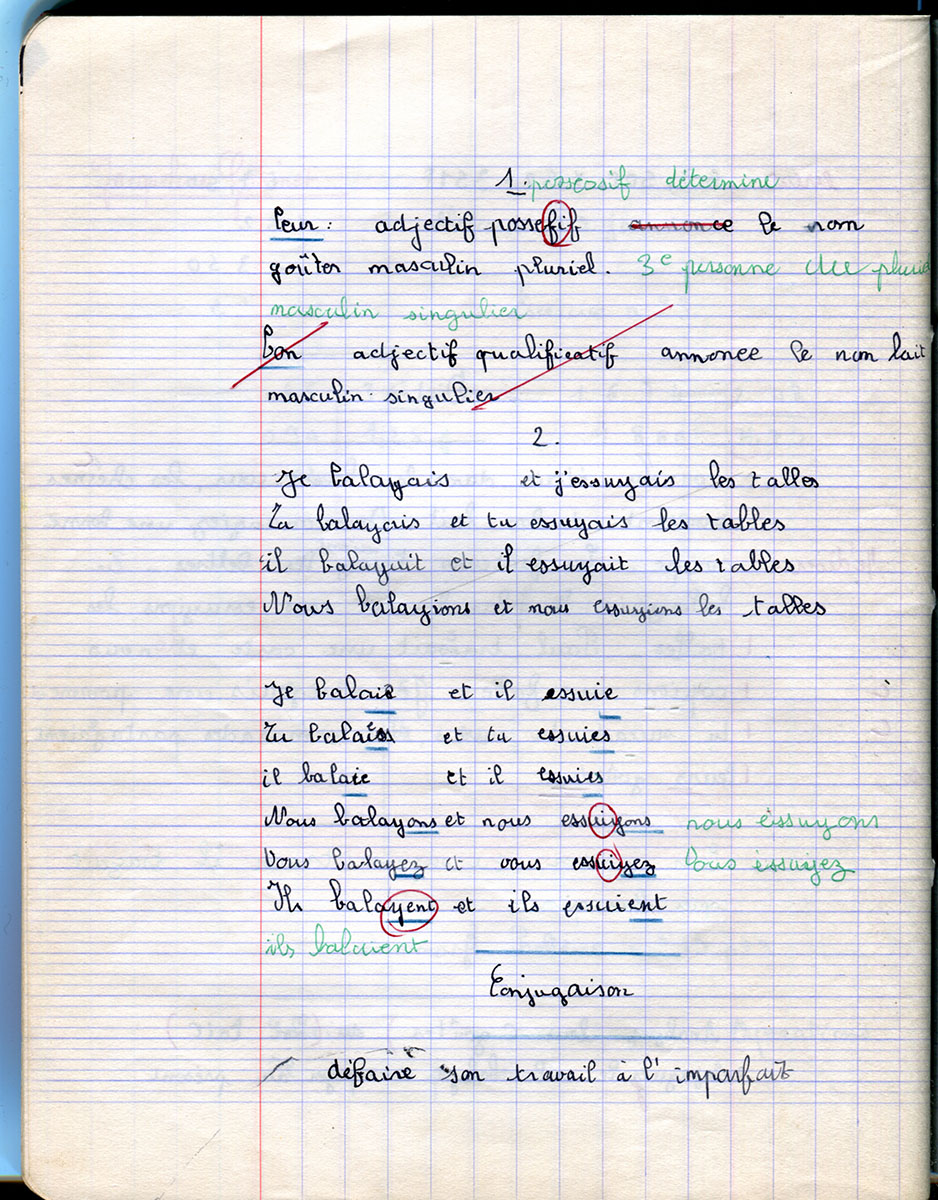 1. possessif détermine
Leur : adjectif possefif annonce le nom
goûter masculin pluriel. 3e personne du pluriel
masculin singulier
Bon adjectif qualificatif annonce le nom lait
masculin singulier
2.
Je balayais et j'essuyais les tables
Tu balayais et tu essuyais les tables
il balayait et il essuyait les tables
Nous balayions et nous essuyions les tables
Je balaie et il essuie
Tu balaies et tu essuies
il balaie et il essuies
Nous balayons et nous essuiyons nous éssuyons
Vous balayez et vous essuiyez Vous éssuyez
Ils balayent et ils essuient
ils balaient
Conjugaison
défaire son travail à l'imparfait